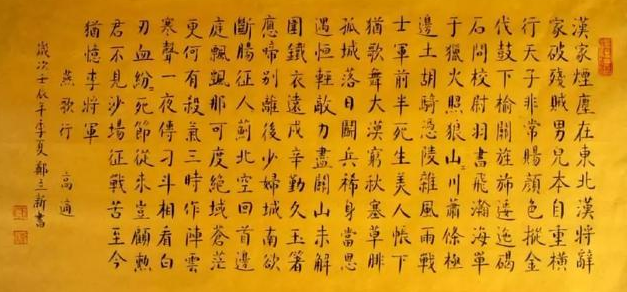 漢家煙塵在東北漢將辭
家破殘賊男兒本自重橫
行天子非常賜顏色摐金
伐鼓下榆關旌旆逶迤碣
石間校尉羽書飛瀚海單
于獵火照狼山〻川蕭條極
邊土胡騎憑陵雜風雨戰
士軍前半死生美人帳下
猶歌舞大漠窮秋塞草腓
孤城落日鬪兵稀身當恩
遇恒輕敵力盡關山未解
圍鐵衣遠戍辛勤久玉箸
應啼別離後少婦城南欲
斷腸征人薊北空回首邊
庭飄飄那可度絕域蒼茫
更何有殺氣三時作陣雲
寒聲一夜傳刁斗相看白
刃血紛〻死節從來豈顧勲
君不見沙場征戰苦至今
猶憶李將軍
燕歌行 高適
歲次壬辰年季夏鄭立新書